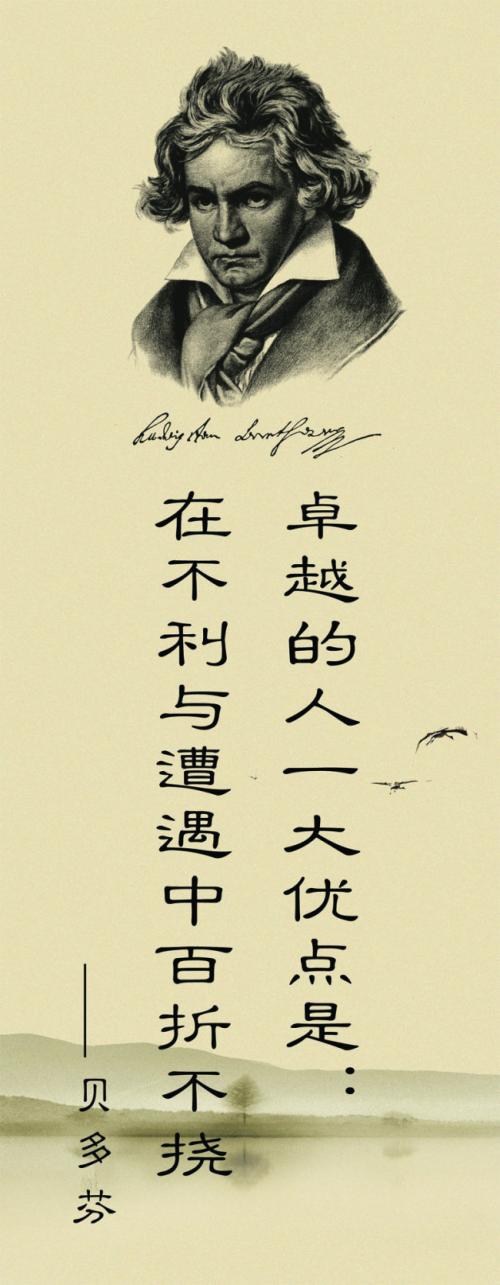 Ludwig van Beethoven
卓越的人一大优点是：
在不利与遭遇中百折不挠
——贝多芬